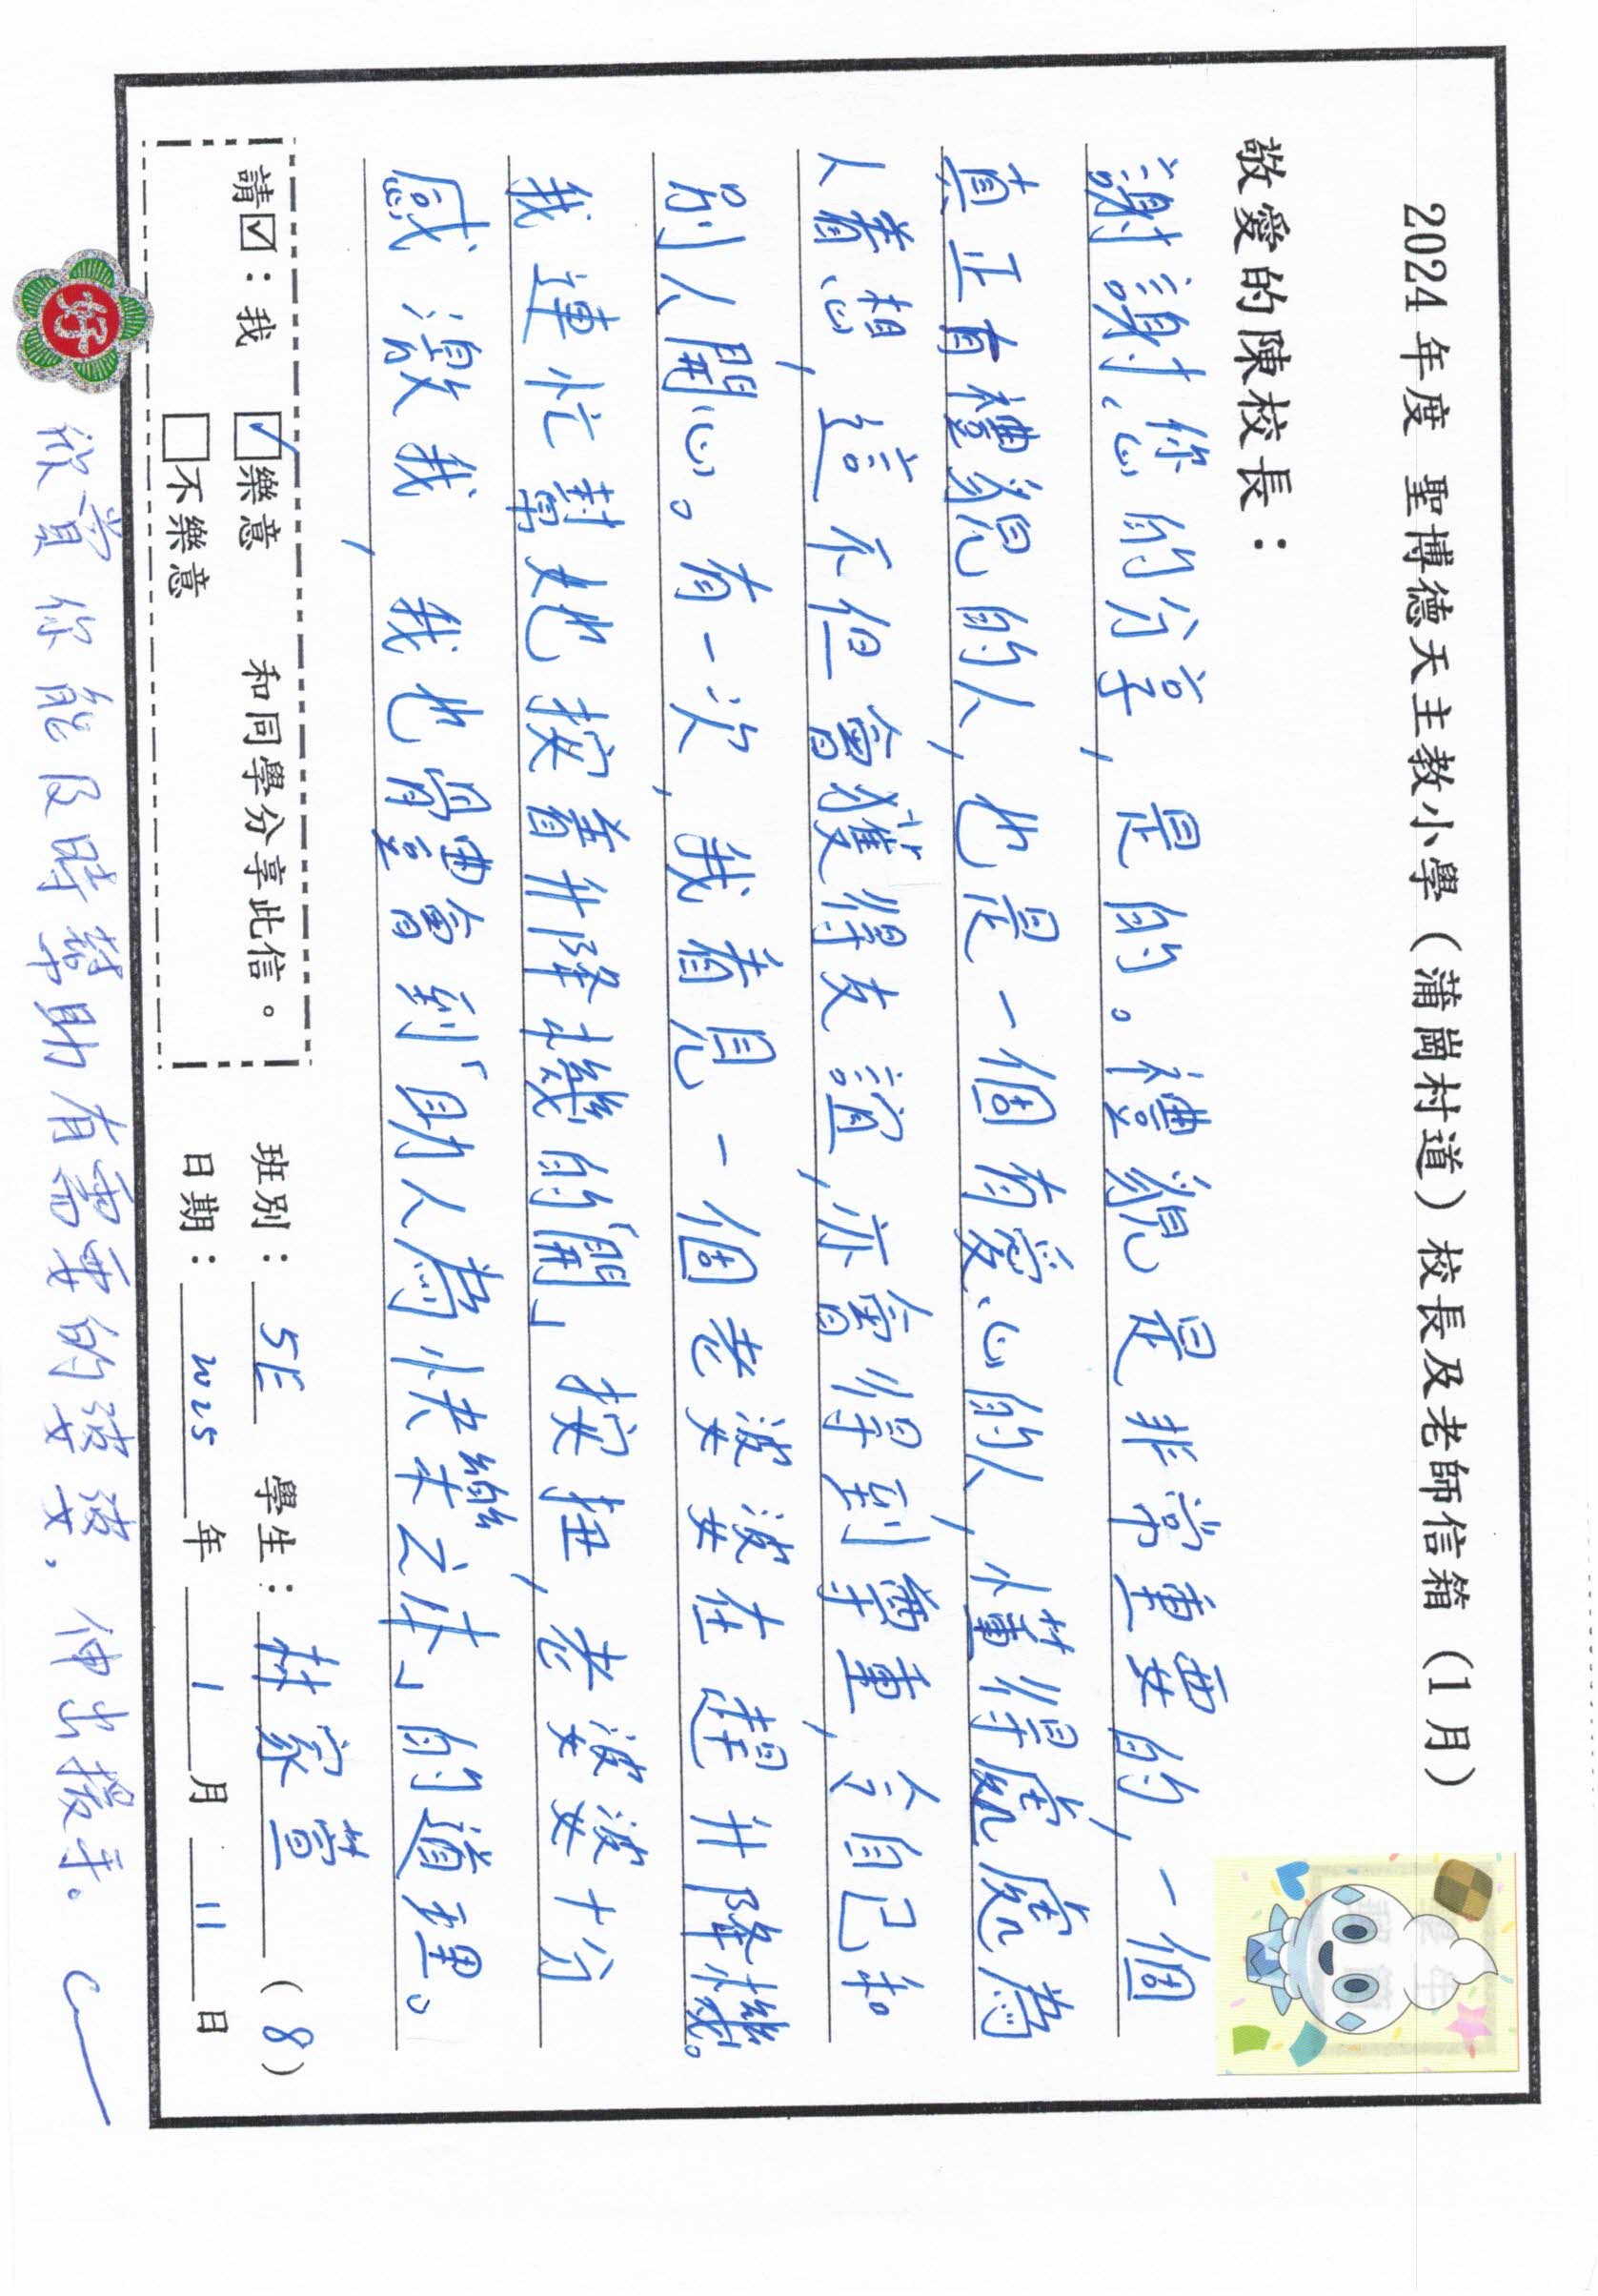 2024年度 聖博德天主教小學（蒲崗村道）校長及老師信箱（1月）
敬愛的陳校長：
謝謝您的分享，是的。禮貌是非常重要的，一個
真正有禮貌的人，也是一個有愛心的人，懂得處處為
人着想，這不但會獲得友誼，亦會得到尊重，令自己和
別人開心。有一次，我看見一個老婆婆在趕升降機。
我連忙幫她按着升降機的「開」按扭，老婆婆十分
感激我，我也曾體會到「助人為快樂之本」的道理。
請☑：我 ☑樂意 和同學分享此信。
☐不樂意
班別：5E 學生：林家萱（8）
日期：2025年1月11日
好
欣賞你能及時幫助有需要的婆婆，伸出援手。